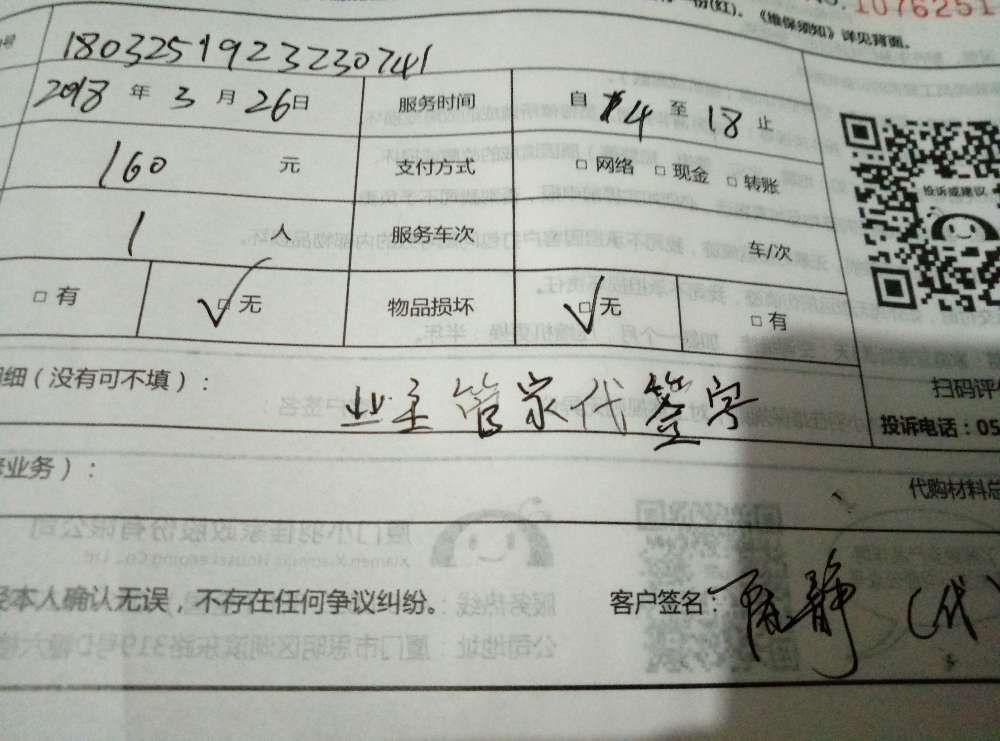 份(红)。《维保须知》详见背面。
1076251
号 1803251923230741
2018 年 3 月 26 日 服务时间 自 14 至 18 止
160 元 支付方式 □ 网络 □ 现金 □ 转账
1 人 服务车次 车/次
投诉或建议
□ 有 □ 无 物品损坏 □ 无 □ 有
明细（没有可不填）： 业主管家代签字
扫码评
投诉电话：05
业务）：
代购材料总
厦门小羽佳家政股份有限公司
Xiamen Xiaoyujia Housekeeping Co., Ltd.
经本人确认无误，不存在任何争议纠纷。 客户签名： 静（代）
服务热线：
公司地址：厦门市思明区湖滨东路319号D幢六楼